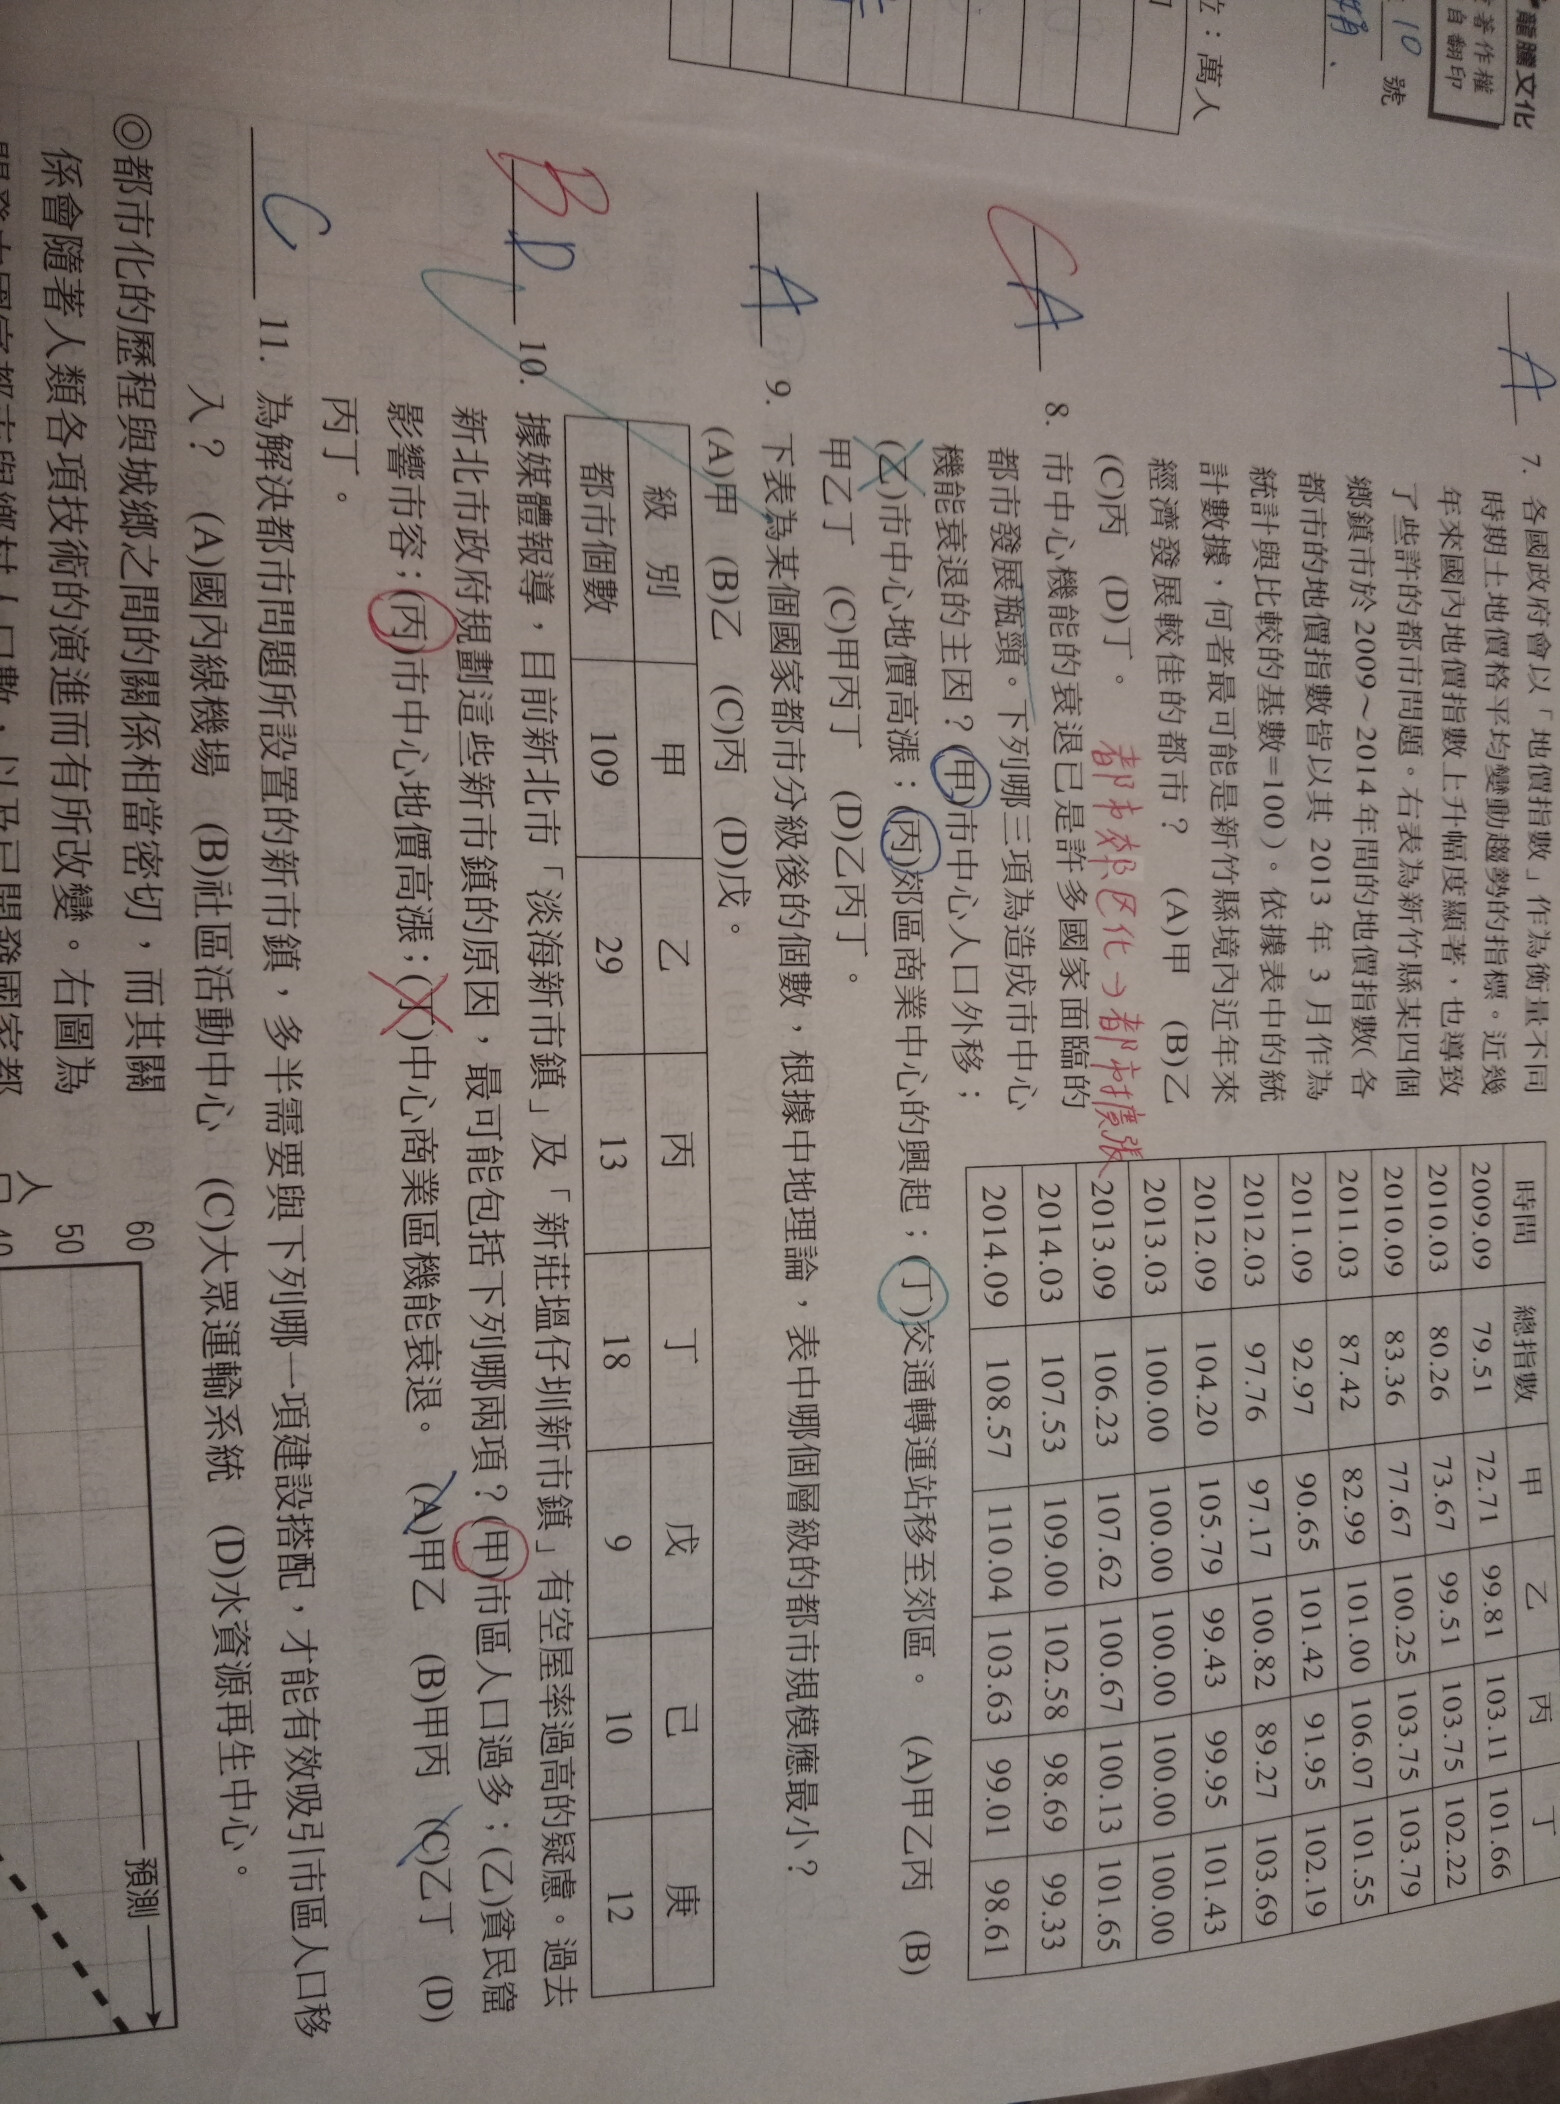 龍騰文化
著作權
自翻印
10 號
位：萬人
A 7. 各國政府會以「地價指數」作為衡量不同
時期土地價格平均變動趨勢的指標。近幾
年來國內地價指數上升幅度顯著，也導致
了些許的都市問題。右表為新竹縣某四個
鄉鎮市於2009～2014年間的地價指數(各
都市的地價指數皆以其2013年3月作為
統計與比較的基數=100)。依據表中的統
計數據，何者最可能是新竹縣境內近年來
經濟發展較佳的都市？ (A)甲 (B)乙
(C)丙 (D)丁。
時間 總指數 甲 乙 丙 丁
2009.09 79.51 72.71 99.81 103.11 101.66
2010.03 80.26 73.67 99.51 103.75 102.22
2010.09 83.36 77.67 100.25 103.75 103.79
2011.03 87.42 82.99 101.00 106.07 101.55
2011.09 92.97 90.65 101.42 91.95 102.19
2012.03 97.76 97.17 100.82 89.27 103.69
2012.09 104.20 105.79 99.43 99.95 101.43
2013.03 100.00 100.00 100.00 100.00 100.00
2013.09 106.23 107.62 100.67 100.13 101.65
2014.03 107.53 109.00 102.58 98.69 99.33
2014.09 108.57 110.04 103.63 99.01 98.61
都市郊區化→都市擴張
C A 8. 市中心機能的衰退已是許多國家面臨的
都市發展瓶頸。下列哪三項為造成市中心
機能衰退的主因？(甲)市中心人口外移；
(乙)市中心地價高漲；(丙)郊區商業中心的興起；(丁)交通轉運站移至郊區。 (A)甲乙丙 (B)
甲乙丁 (C)甲丙丁 (D)乙丙丁。
A 9. 下表為某個國家都市分級後的個數，根據中地理論，表中哪個層級的都市規模應最小？
(A)甲 (B)乙 (C)丙 (D)戊。
級別 甲 乙 丙 丁 戊 己 庚
都市個數 109 29 13 18 9 10 12
B D 10. 據媒體報導，目前新北市「淡海新市鎮」及「新莊塭仔圳新市鎮」有空屋率過高的疑慮。過去
新北市政府規劃這些新市鎮的原因，最可能包括下列哪兩項？(甲)市區人口過多；(乙)貧民窟
影響市容；(丙)市中心地價高漲；(丁)中心商業區機能衰退。 (A)甲乙 (B)甲丙 (C)乙丁 (D)
丙丁。
C 11. 為解決都市問題所設置的新市鎮，多半需要與下列哪一項建設搭配，才能有效吸引市區人口移
入？ (A)國內線機場 (B)社區活動中心 (C)大眾運輸系統 (D)水資源再生中心。
◎都市化的歷程與城鄉之間的關係相當密切，而其關
係會隨著人類各項技術的演進而有所改變。右圖為
60
50
40
人
口
預測